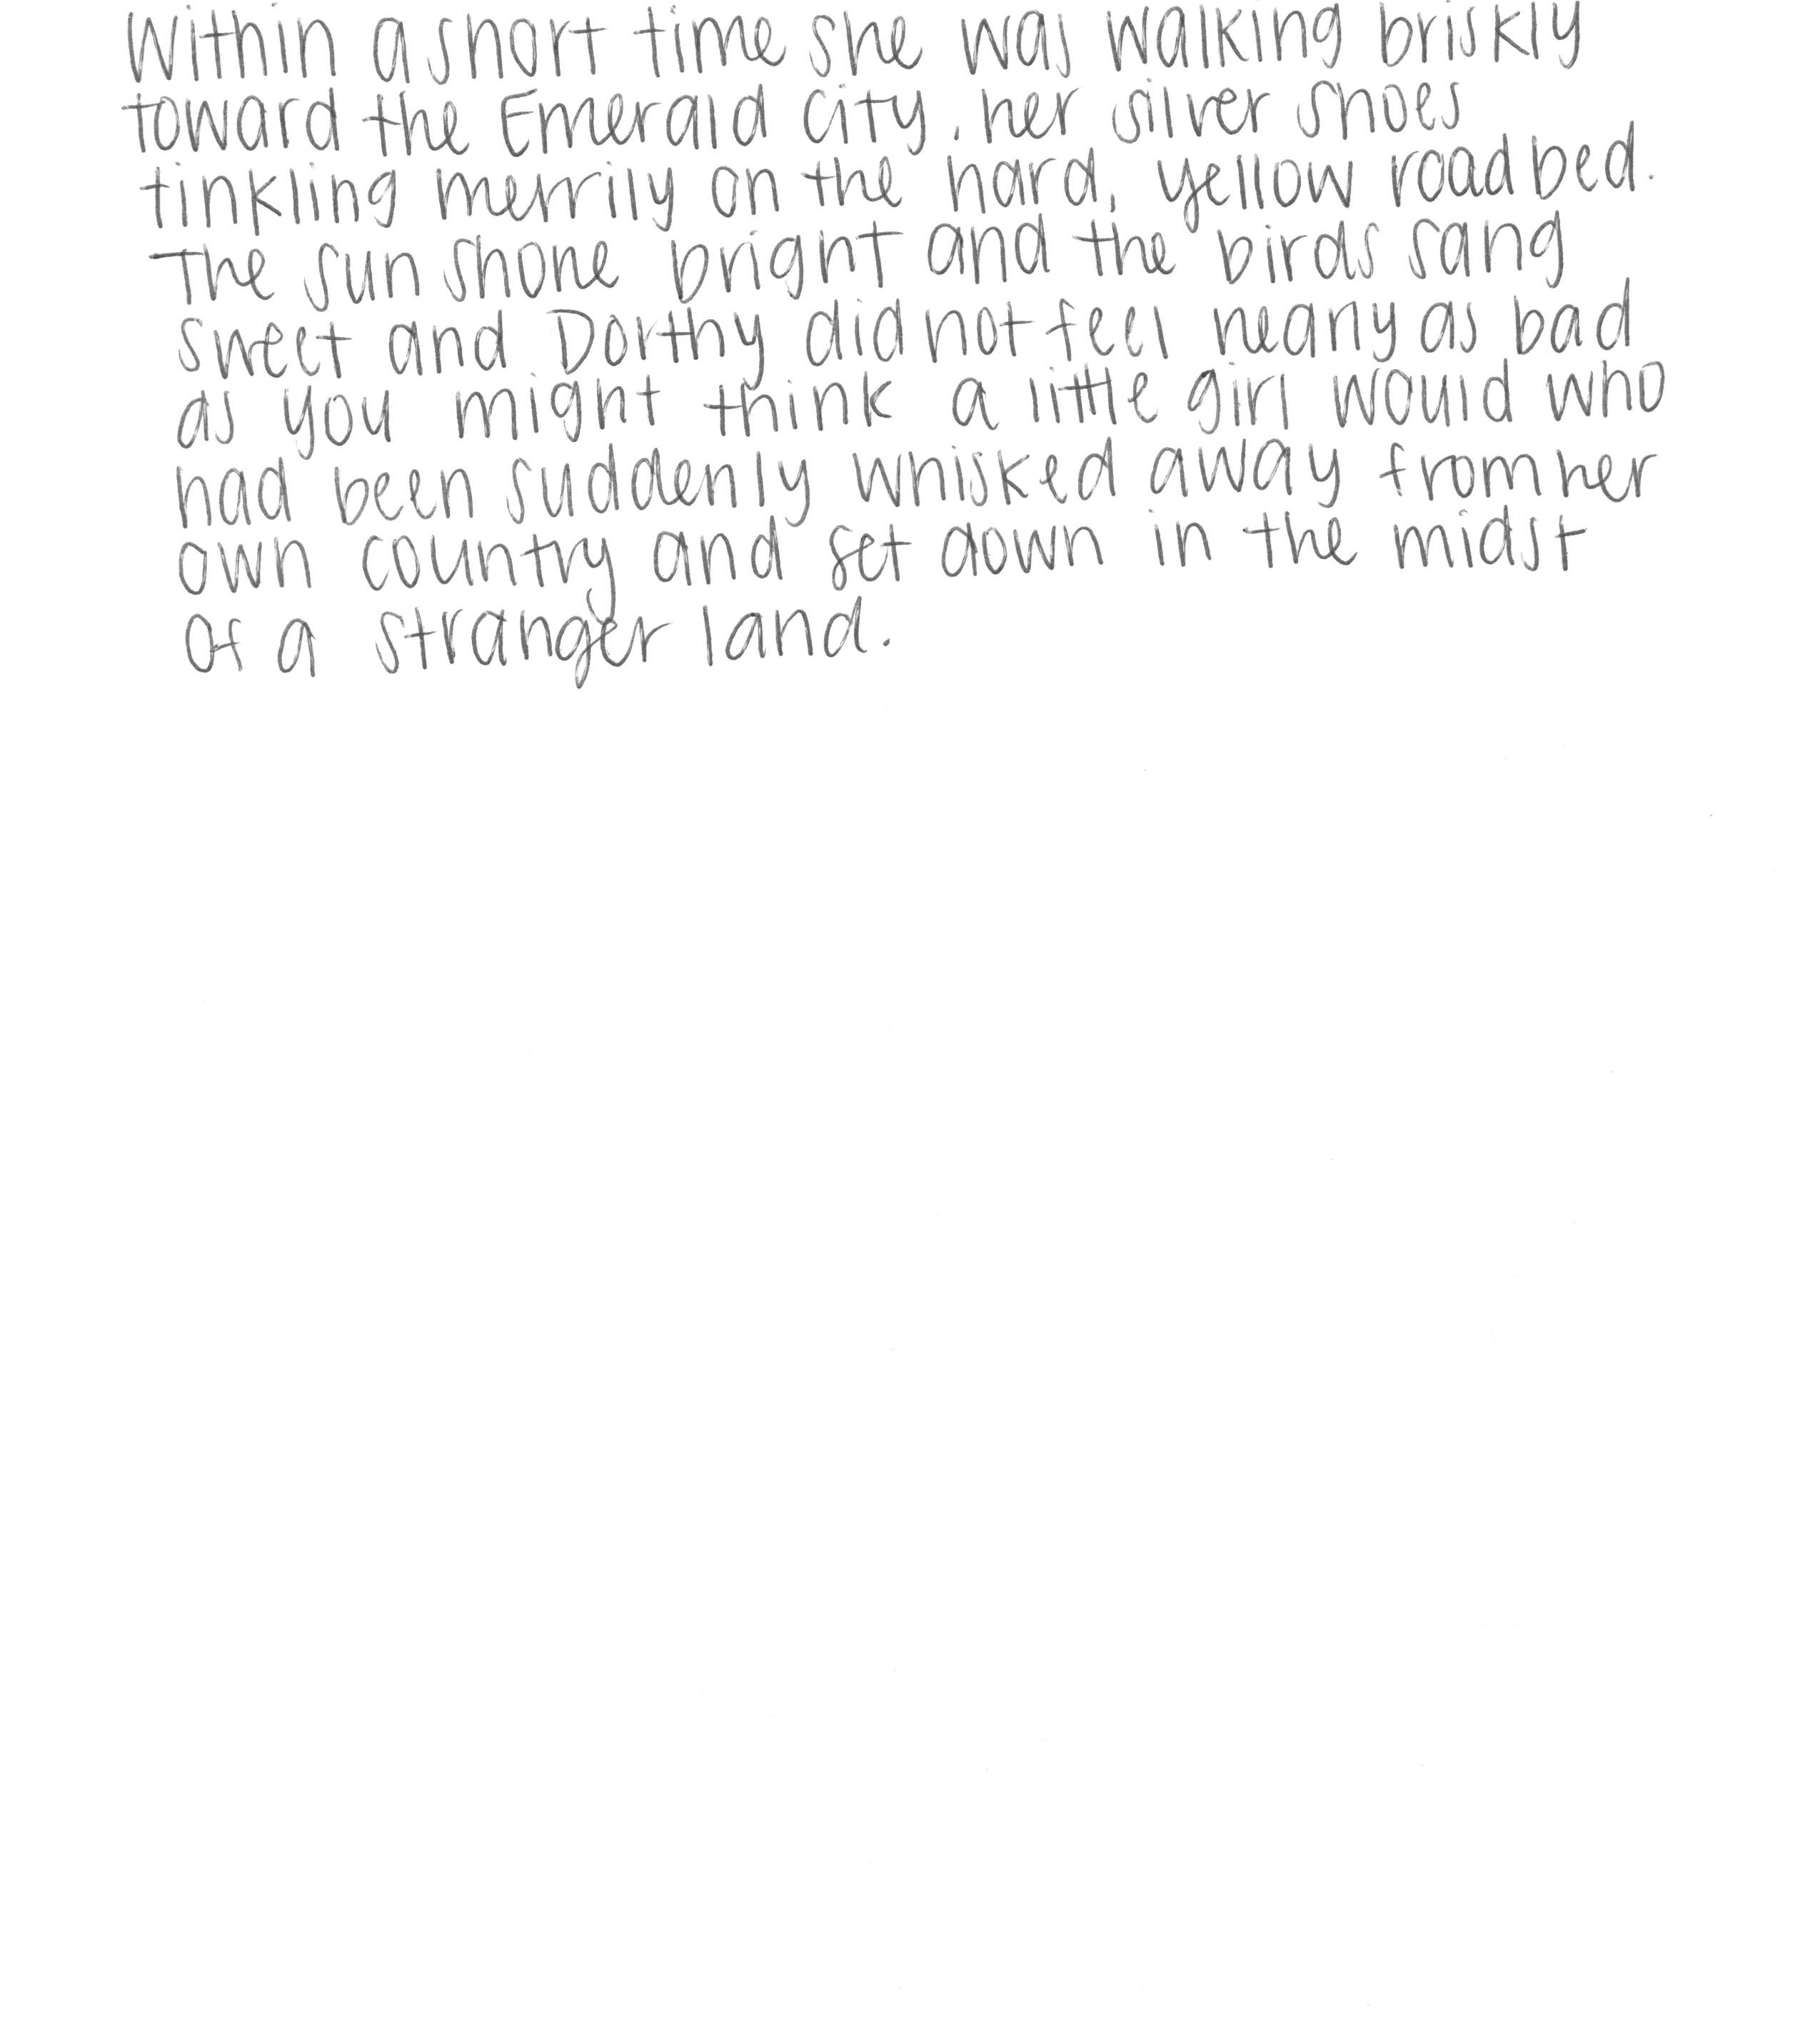 Within a short time she was walking briskly
toward the Emerald City, her silver shoes
tinkling merrily on the hard, yellow roadbed.
The sun shone bright and the birds sang
sweet and Dorthy did not feel nearly as bad
as you might think a little girl would who
had been suddenly whisked away from her
own country and set down in the midst
of a stranger land.